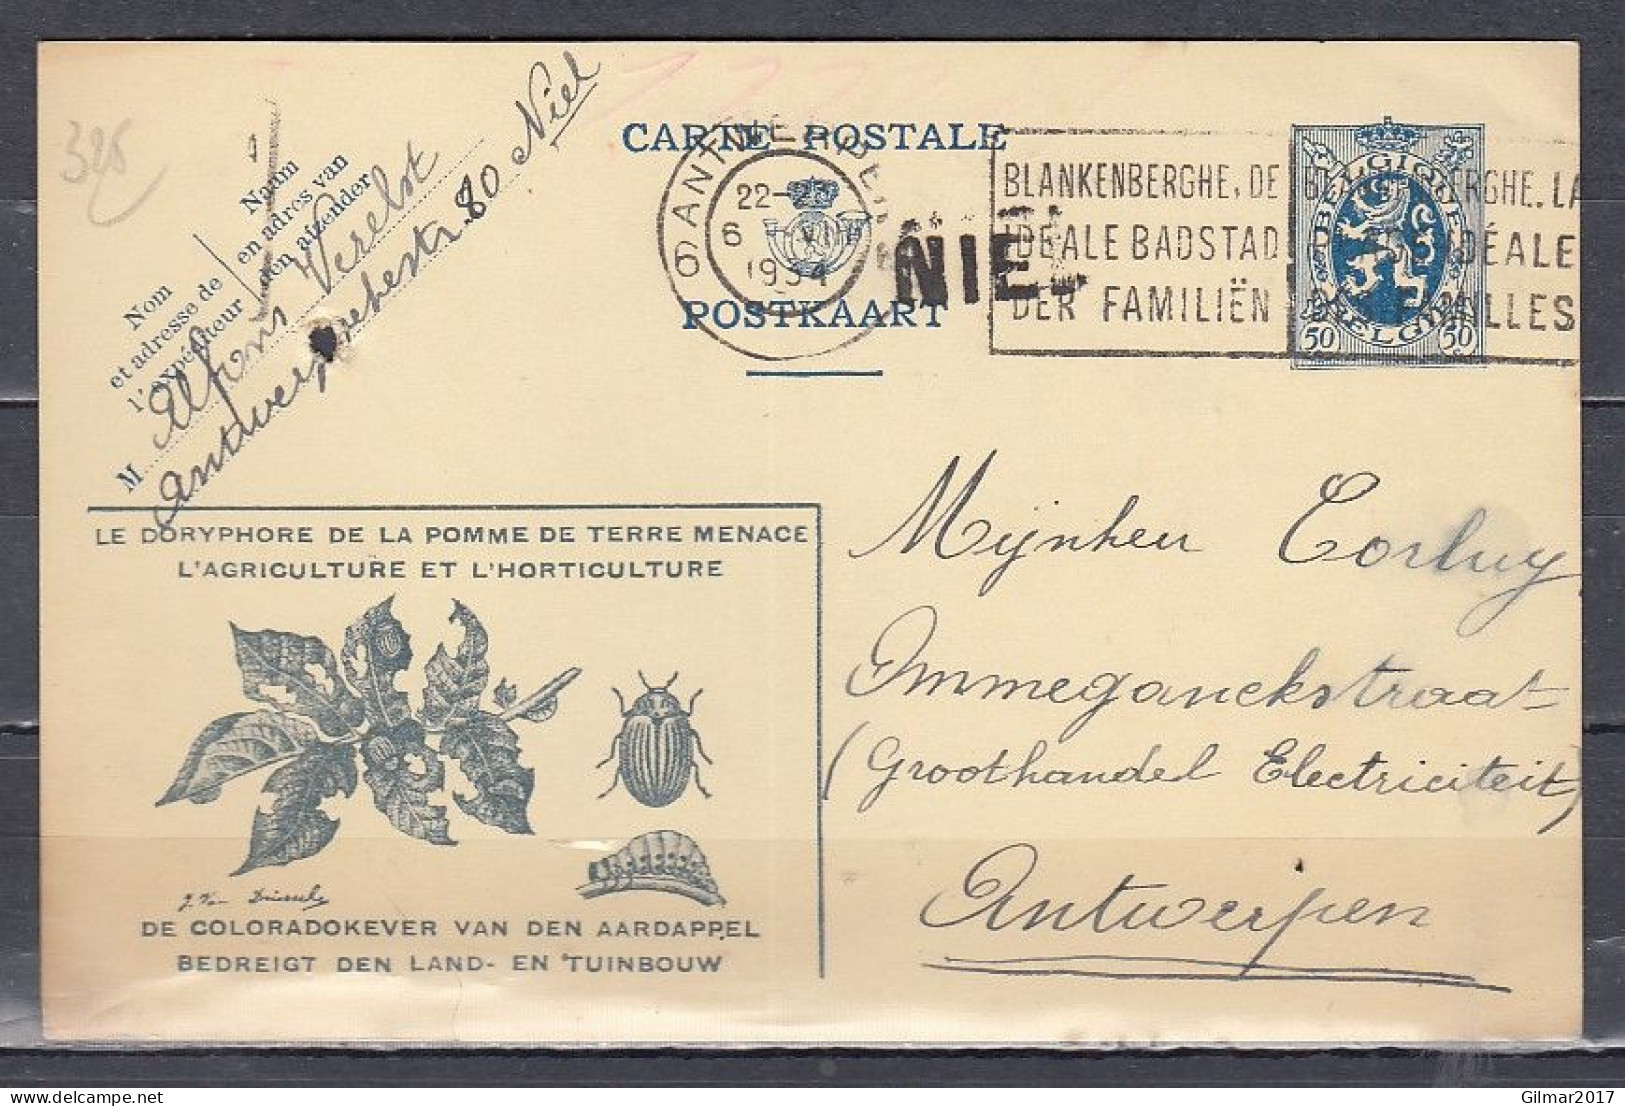 326
CARTE POSTALE
POSTKAART
Nom
et adresse de
l'expéditeur
Naam
en adres van
den afzender
M Alfons Verelst
Antwerpschestr 80 Niel
6 ANTWERPEN 6
22-23
6 VII
1934
NIEL
BLANKENBERGHE, DE
IDEALE BADSTAD
DER FAMILIËN
BLANKENBERGHE. LA
IDÉALE
FAMILLES
BELGIQUE
BELGIË
50 c 50 c
LE DORYPHORE DE LA POMME DE TERRE MENACE
L'AGRICULTURE ET L'HORTICULTURE
J. Van Driessche
DE COLORADOKEVER VAN DEN AARDAPPEL
BEDREIGT DEN LAND- EN TUINBOUW
Mijnheer Corluy
Ommeganckstraat
(Groothandel Electriciteit)
Antwerpen
Gilmar2017